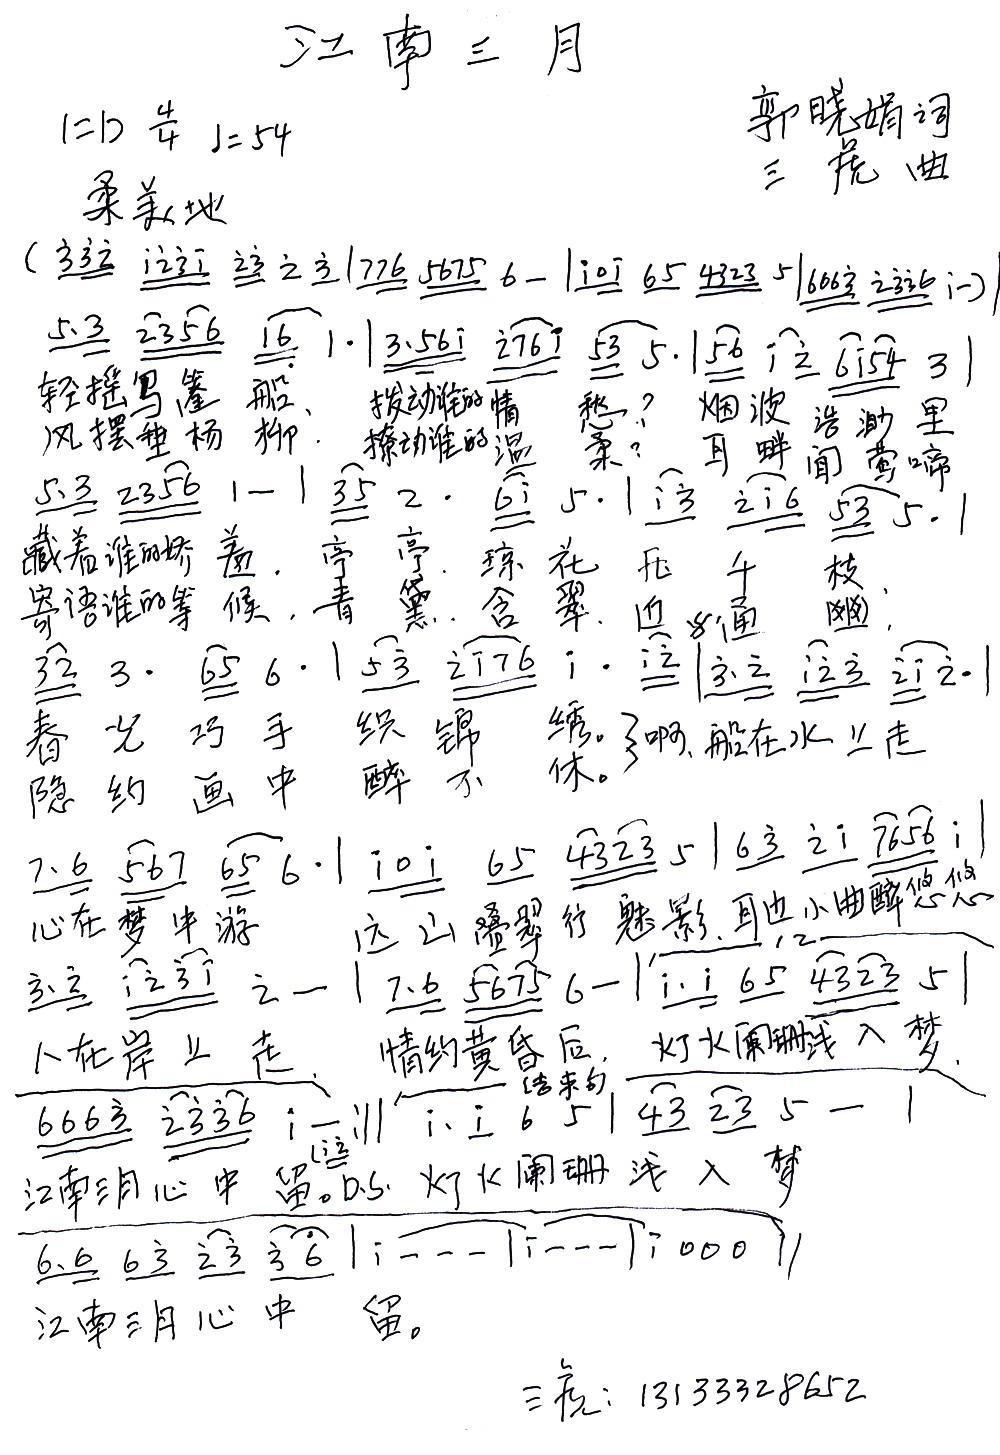 江南三月
1=D 4/4 ♩=54
郭晓娟词
三 虎 曲
柔美地
(3 3 2 1 2 3 1 2 3 2 3 | 7 7 6 5 6 7 5 6 - | 1 0 1 6 5 4 3 2 3 5 | 6 0 6 3 2 3 3 6 1 -) |
5. 3 2 3 5 6 1 6 1 · | 3. 5 6 1 2 7 6 1 5 3 5 · | 5 6 1 2 6 1 5 4 3 |
轻摇乌篷 船, 拨动谁的情 愁? 烟波 浩渺里
风摆垂杨 柳. 撩动谁的温 柔? 耳畔 闻莺啼
5. 3 2 3 5 6 1 - | 3 5 2 · 6 1 5 · | 1 3 2 1 6 5 3 5 · |
藏着谁的娇羞. 亭 亭. 琼 花 开 千 枝
寄语谁的等候. 青 黛. 含 翠. 通 幽.
3 2 3 · 6 5 6 · | 5 3 2 1 7 6 1 · 1 2 | 3. 2 1 2 3 2 1 2 · |
春 光 巧 手 织 锦 绣。}啊, 船在水上走
隐 约 画 中 醉 不 休。
7. 6 5 6 7 6 5 6 · | 1 0 1 6 5 4 3 2 3 5 | 6 3 2 1 7 6 5 6 1 |
心在梦中游 远山叠翠行魅影, 耳边小曲醉悠悠
3. 2 1 2 3 1 2 - | 7. 6 5 6 7 5 6 - | 1. 1 6 5 4 3 2 3 5 |
人在岸上 走, 情约黄昏后, 灯火阑珊浅入梦.
结束句
6 6 6 3 2 3 3 6 1 - :|| 1. 1 6 5 | 4 3 2 3 5 - |
江南三月心中 留。D.S. 灯火阑珊 浅 入 梦
6. 6 6 3 2 3 3 6 | 1 - - - | 1 - - - | 1 0 0 0 ||
江南三月心中 留。
三虎: 13133328652